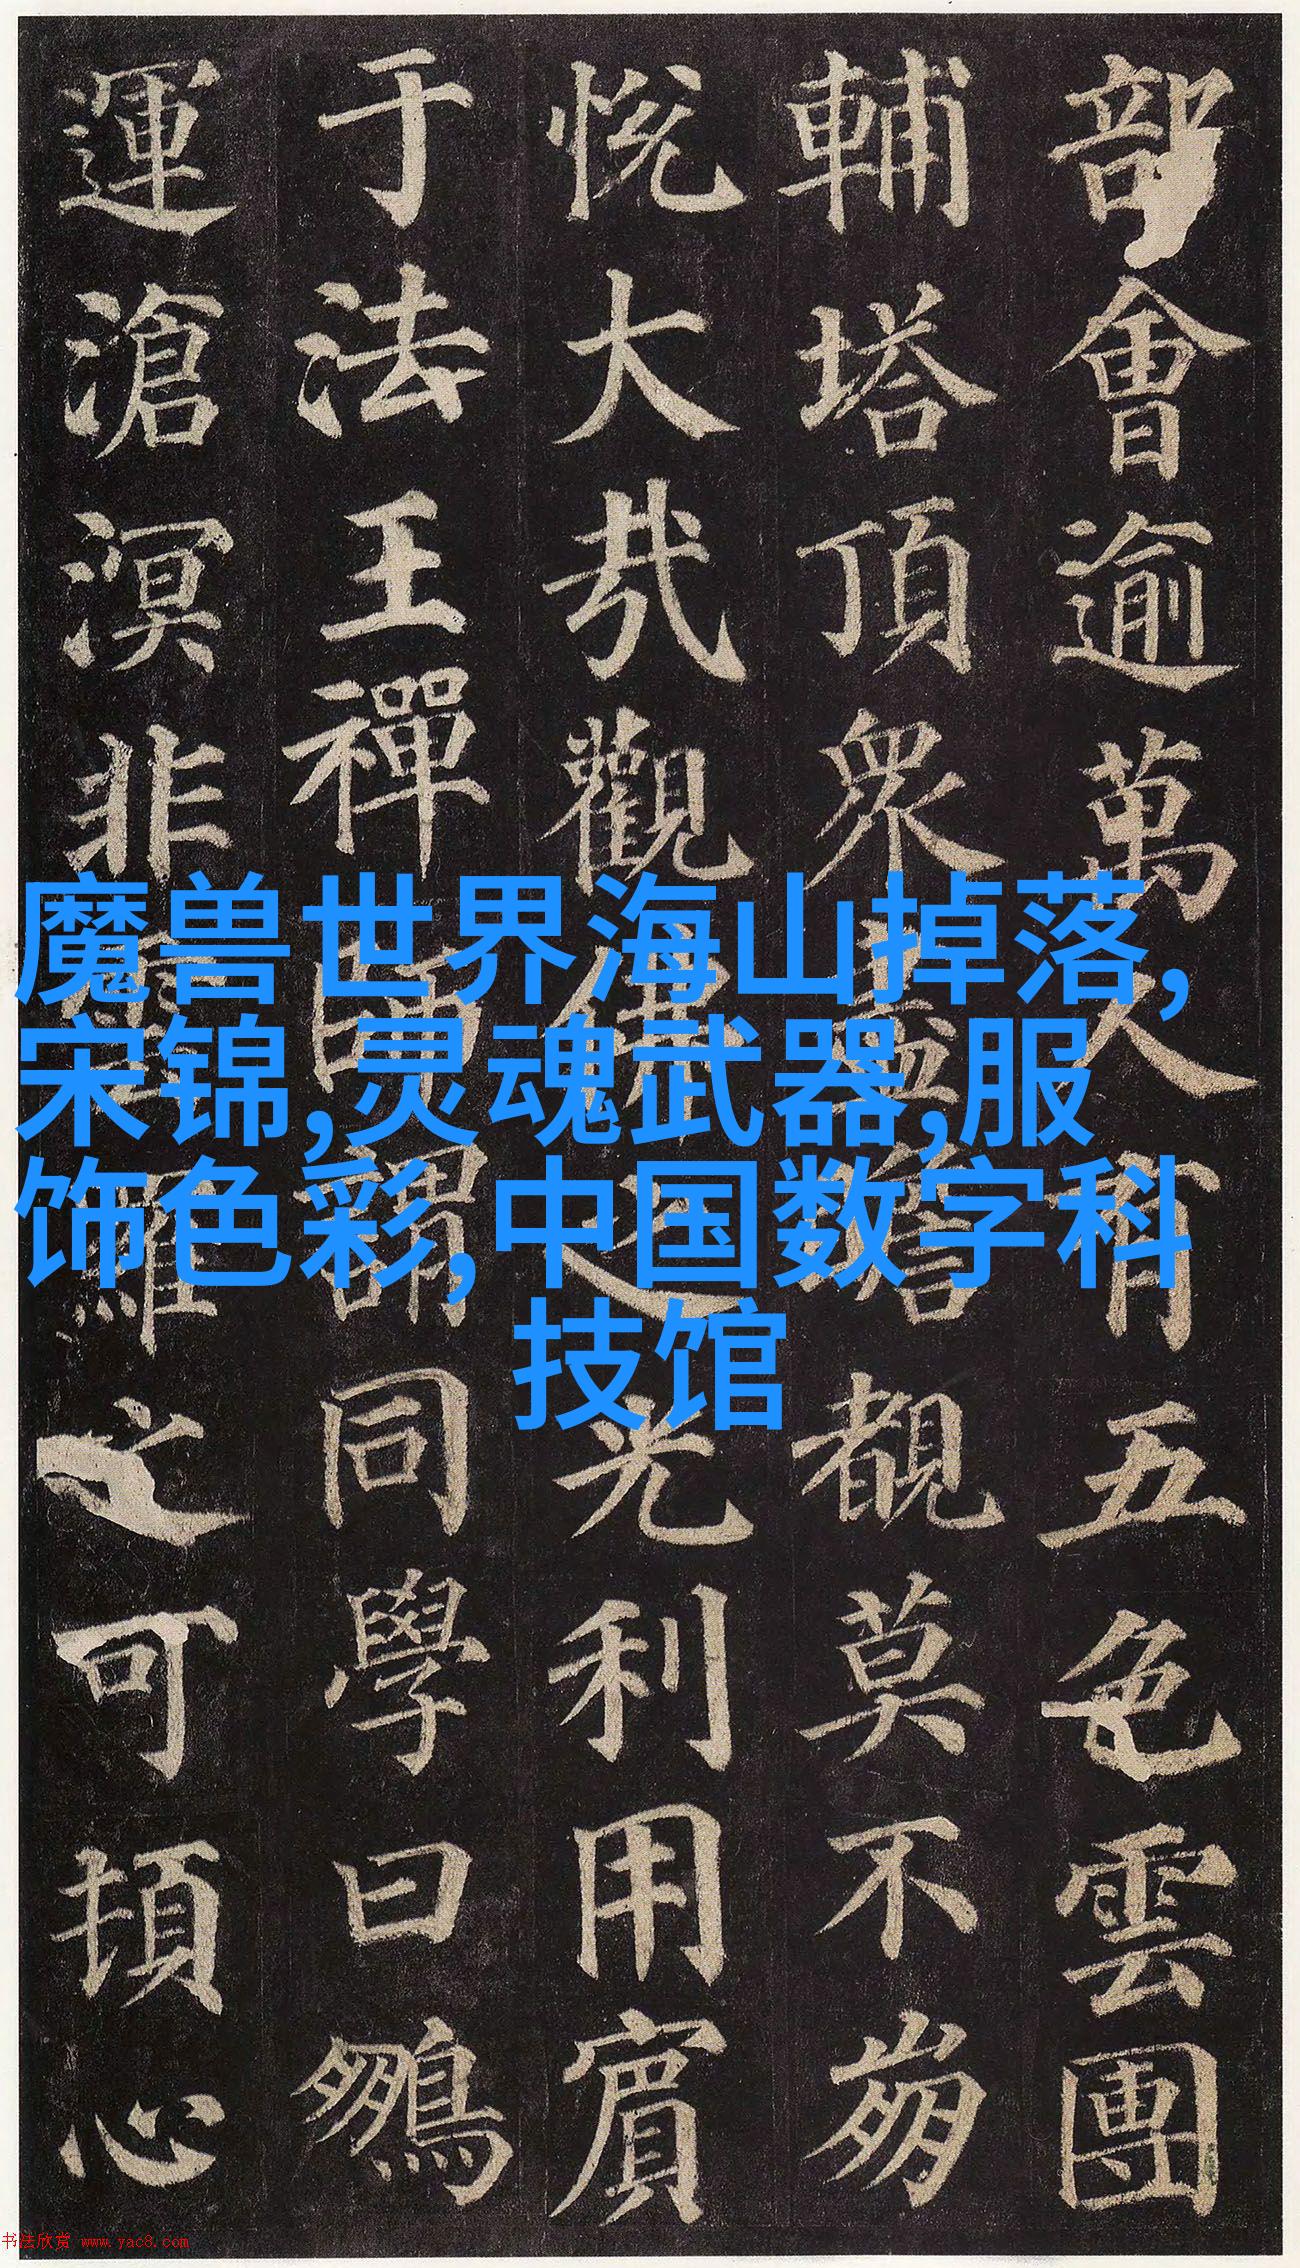 部會逾萬人有五色雲團
輔塔頂眾盡瞻覩莫不崩
悅大哉觀佛之光利用賓
于法王禪師謂同學曰鵬
運滄溟非雲羅之可頓心
魔兽世界海山掉落,
宋锦,灵魂武器,服
饰色彩,中国数字科
技馆
书法欣赏 www.yac8.com